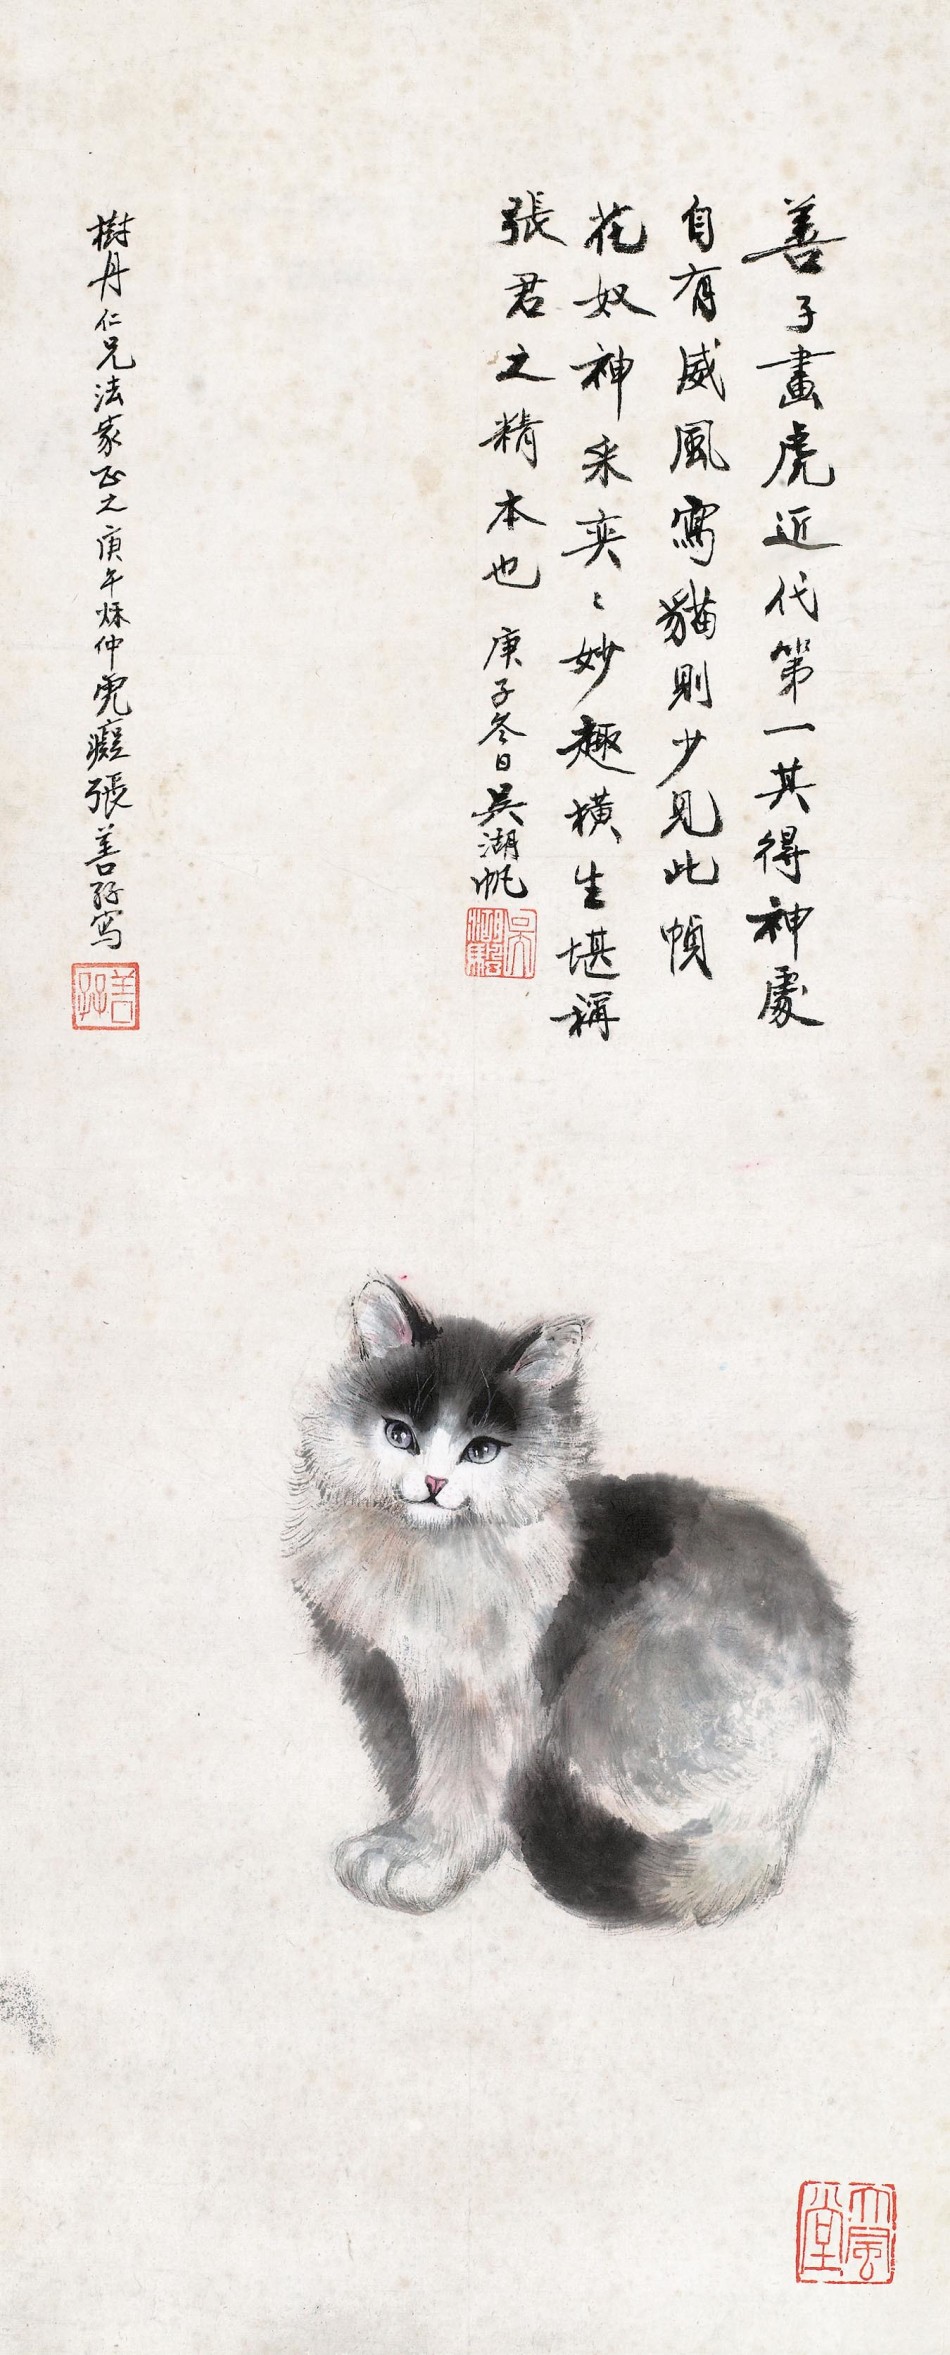 善子畫虎近代第一其得神處
自有威風寫貓則少見此幀
花奴神采奕〻妙趣橫生堪稱
張君之精本也 庚子冬日吳湖帆
吳湖颿
樹丹仁兄法家正之庚午秌仲虎癡張善孖寫
善孖
大風堂